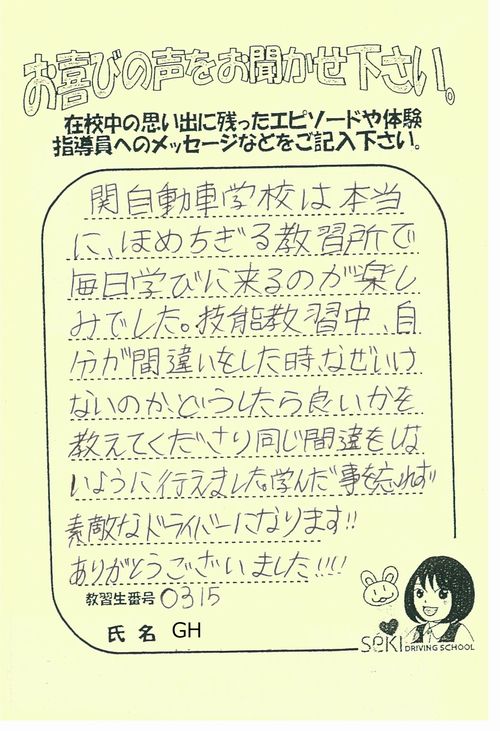 お喜びの声をお聞かせ下さい。
在校中の思い出に残ったエピソードや体験
指導員へのメッセージなどをご記入下さい。
関自動車学校は本当
に、ほめちぎる教習所で
毎日学びに来るのが楽し
みでした。技能教習中、自
分が間違いをした時、なぜいけ
ないのか、どうしたら良いかを
教えてくださり同じ間違をしな
いように行えました。学んだ事を忘れず
素敵なドライバーになります!!
ありがとうございました!!!
教習生番号 0315
氏名 GH
SEKI DRIVING SCHOOL